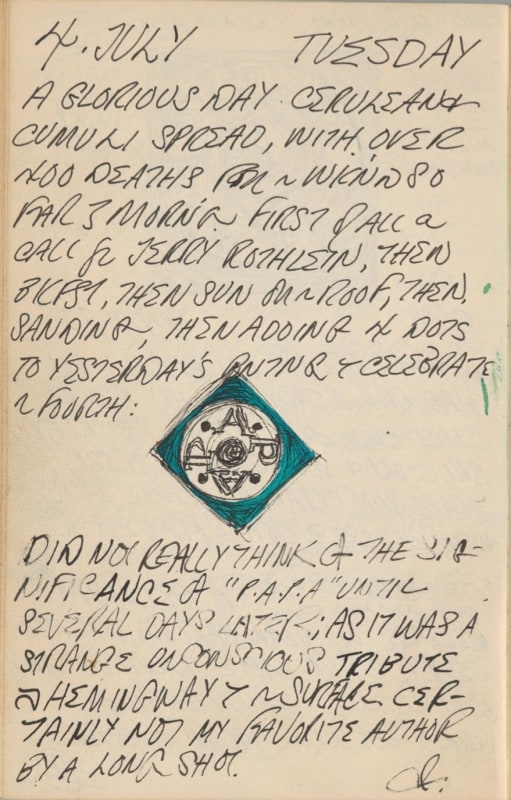 4. JULY TUESDAY
A GLORIOUS DAY CERULEAN &
CUMULI SPREAD, WITH OVER
400 DEATHS FOR ~ WKN'D SO
FAR THIS MORN'G. FIRST OF ALL A
CALL fr JERRY ROTHLEIN, THEN
BKFST, THEN SUN ON ~ ROOF, THEN
SANDING, THEN ADDING 4 DOTS
TO YESTERDAY'S PNTNG TO CELEBRATE
~ FOURTH:
P A P A
DID NOT REALLY THINK OF THE SIG-
NIFICANCE OF "P.A.P.A" UNTIL
SEVERAL DAYS LATER; AS IT WAS A
STRANGE UNCONSCIOUS TRIBUTE
TO HEMINGWAY CER-
TAINLY NOT MY FAVORITE AUTHOR
BY A LONG SHOT.